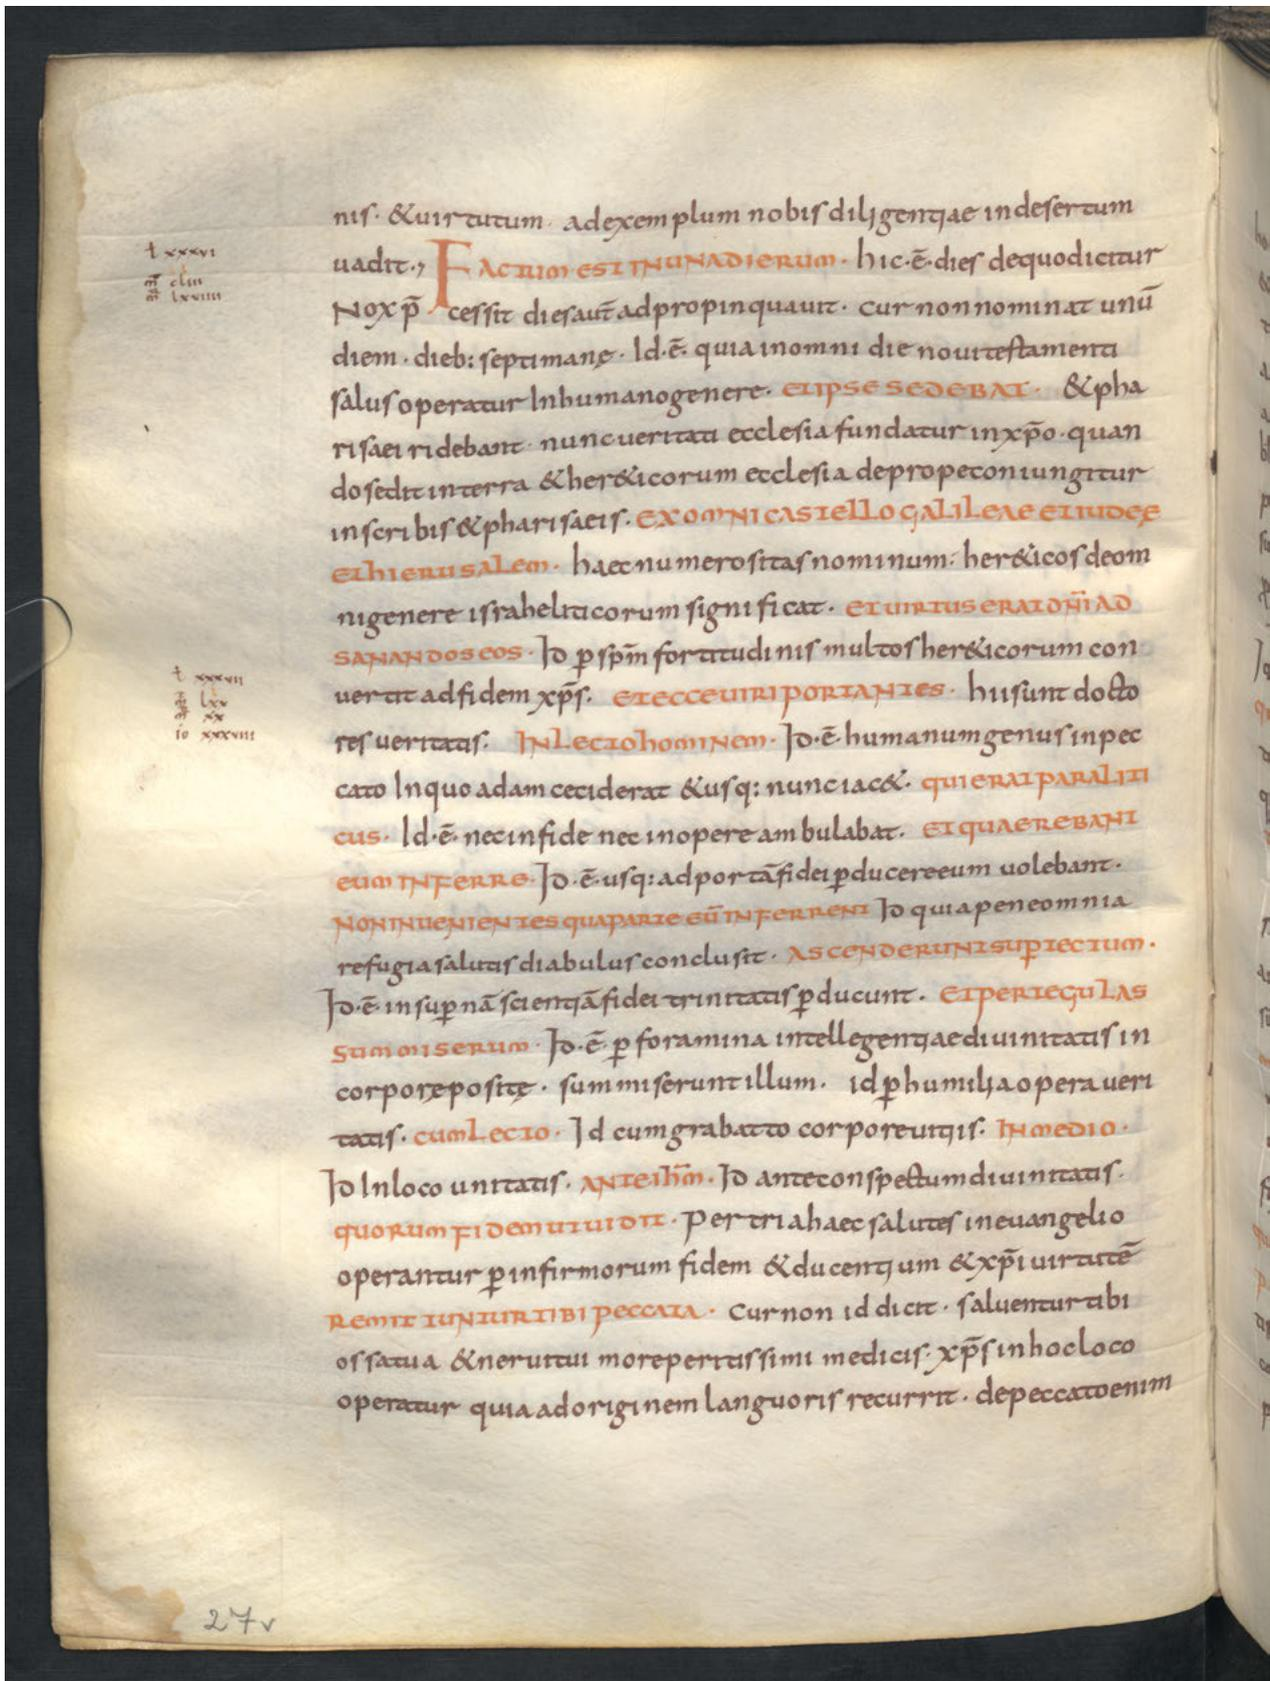 nis· &uirtutum· adexemplum nobis diligentiae indesertum
t xxxvi
uadit·, FACTUM EST IN UNA DIERUM· hic·ē·dies dequodicitur
m̄ clııı
m̄ lxxıııı
Nox p̄cessit diesaut̄ adpropinquauit· cur nonnominat unū
diem· dieb: septimanę· Id·ē· quia inomni die nouitestamenti
salus operatur Inhumanogenere· ET IPSE SEDEBAT· &pha
risaei ridebant· nunc ueritati ecclesia fundatur inxp̄o· quan
do sedit interra &her&icorum ecclesia depropeconiungitur
inscribis &pharisaeis· EX OMNI CASTELLO GALILEAE ET IUDEĘ
ET HIERUSALEM· haec numerositas nominum: her&icos deom
nigenere israheliticorum significat· ET UIRTUS ERAT DN̄I AD
SANANDOS EOS· Id p̱ sp̄m fortitudinis multos her&icorum con
t xxxvii
uertit adfidem xp̄s· ET ECCE UIRI PORTANTES· hiisunt docto
m̄ lxx
m̄ xx
io xxxviii
res ueritatis· IN LECTO HOMINEM· Id·ē·humanumgenus inpec
cato Inquo adam ceciderat &usq: nunc iac&· QUI ERAT PARALITI
CUS· Id·ē· necinfide nec inopere ambulabat· ET QUAEREBANT
EUM INFERRE· Id·ē·usq: adportā fidei p̱ducereeum uolebant·
NON INUENIENTES QUA PARTE EŪ INFERRENT Id quiapeneomnia
refugiasalutis diabulus conclusit· ASCENDERUNT SUP̱ TECTUM·
Id·ē· insup̱nā scientiā fidei trinitatis p̱ducunt· ET PER TEGULAS
SUMMISERUM· Id·ē· p̱ foramina intellegentiae diuinitatis in
corporępositę· summiserunt illum· id p̱humilia opera ueri
tatis· CUM LECTO· Id cumgrabatto corporeuitiis· IN MEDIO·
Id Inloco unitatis· ANTE IH̄M· Id anteconspectum diuinitatis·
QUORUM FIDEM UT UIDIT· Per tria haec salutes ineuangelio
operantur p̱ infirmorum fidem &ducentium &xp̄i uirtutē
REMITTUNTUR TIBI PECCATA· cur non id dicit· saluentur tibi
ossatua &neruitui morepertissimi medicis· xp̄s inhocloco
operatur quia adoriginem languoris recurrit· depeccatoenim
27v